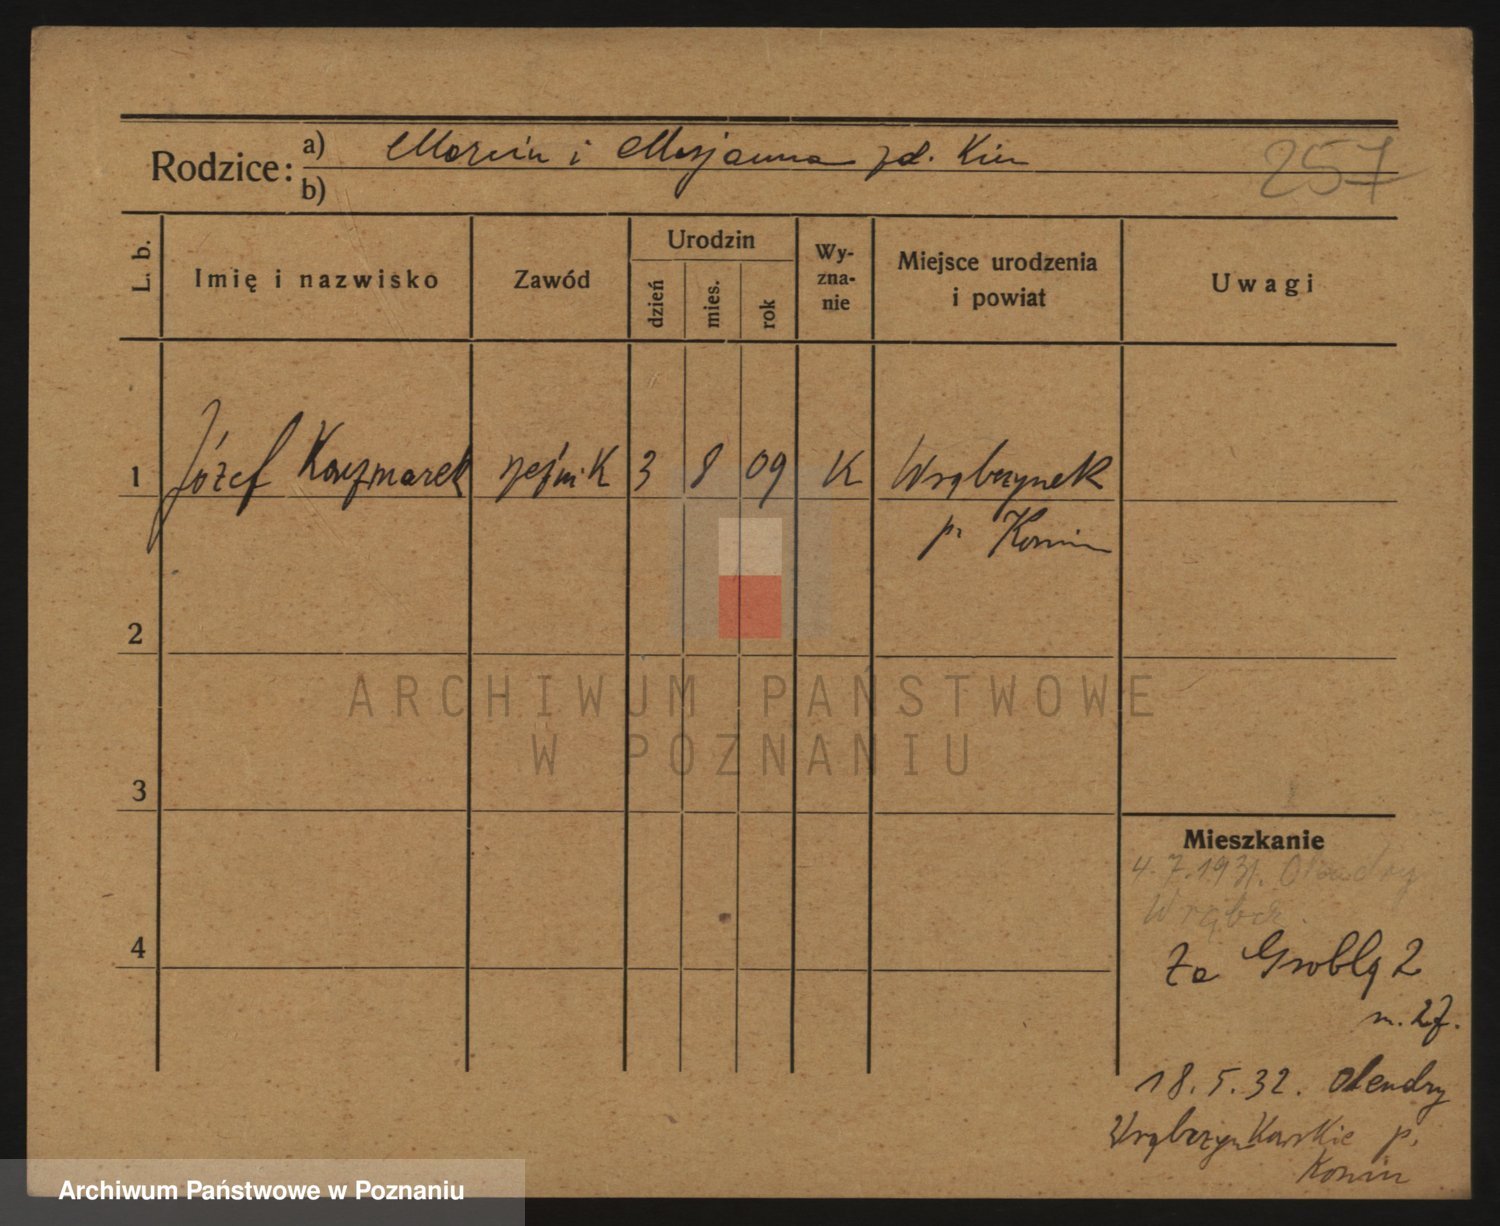 Rodzice: a) Marcin i Marjanna zd. Kin
b)
257
L. b.
Imię i nazwisko
Zawód
Urodzin
dzień
mies.
rok
Wy-
zna-
nie
Miejsce urodzenia
i powiat
Uwagi
1 Józef Kaczmarek rzeźnik 3 8 09 K Wrąbczynek
p. Konin
2
ARCHIWUM PAŃSTWOWE
W POZNANIU
3
Mieszkanie
4.7.1931. Olendry
Wrąbcz.
4
Za Groblą 2
m. 27.
18.5.32. Olendry
Wrąbczynkowskie p.
Konin
Archiwum Państwowe w Poznaniu